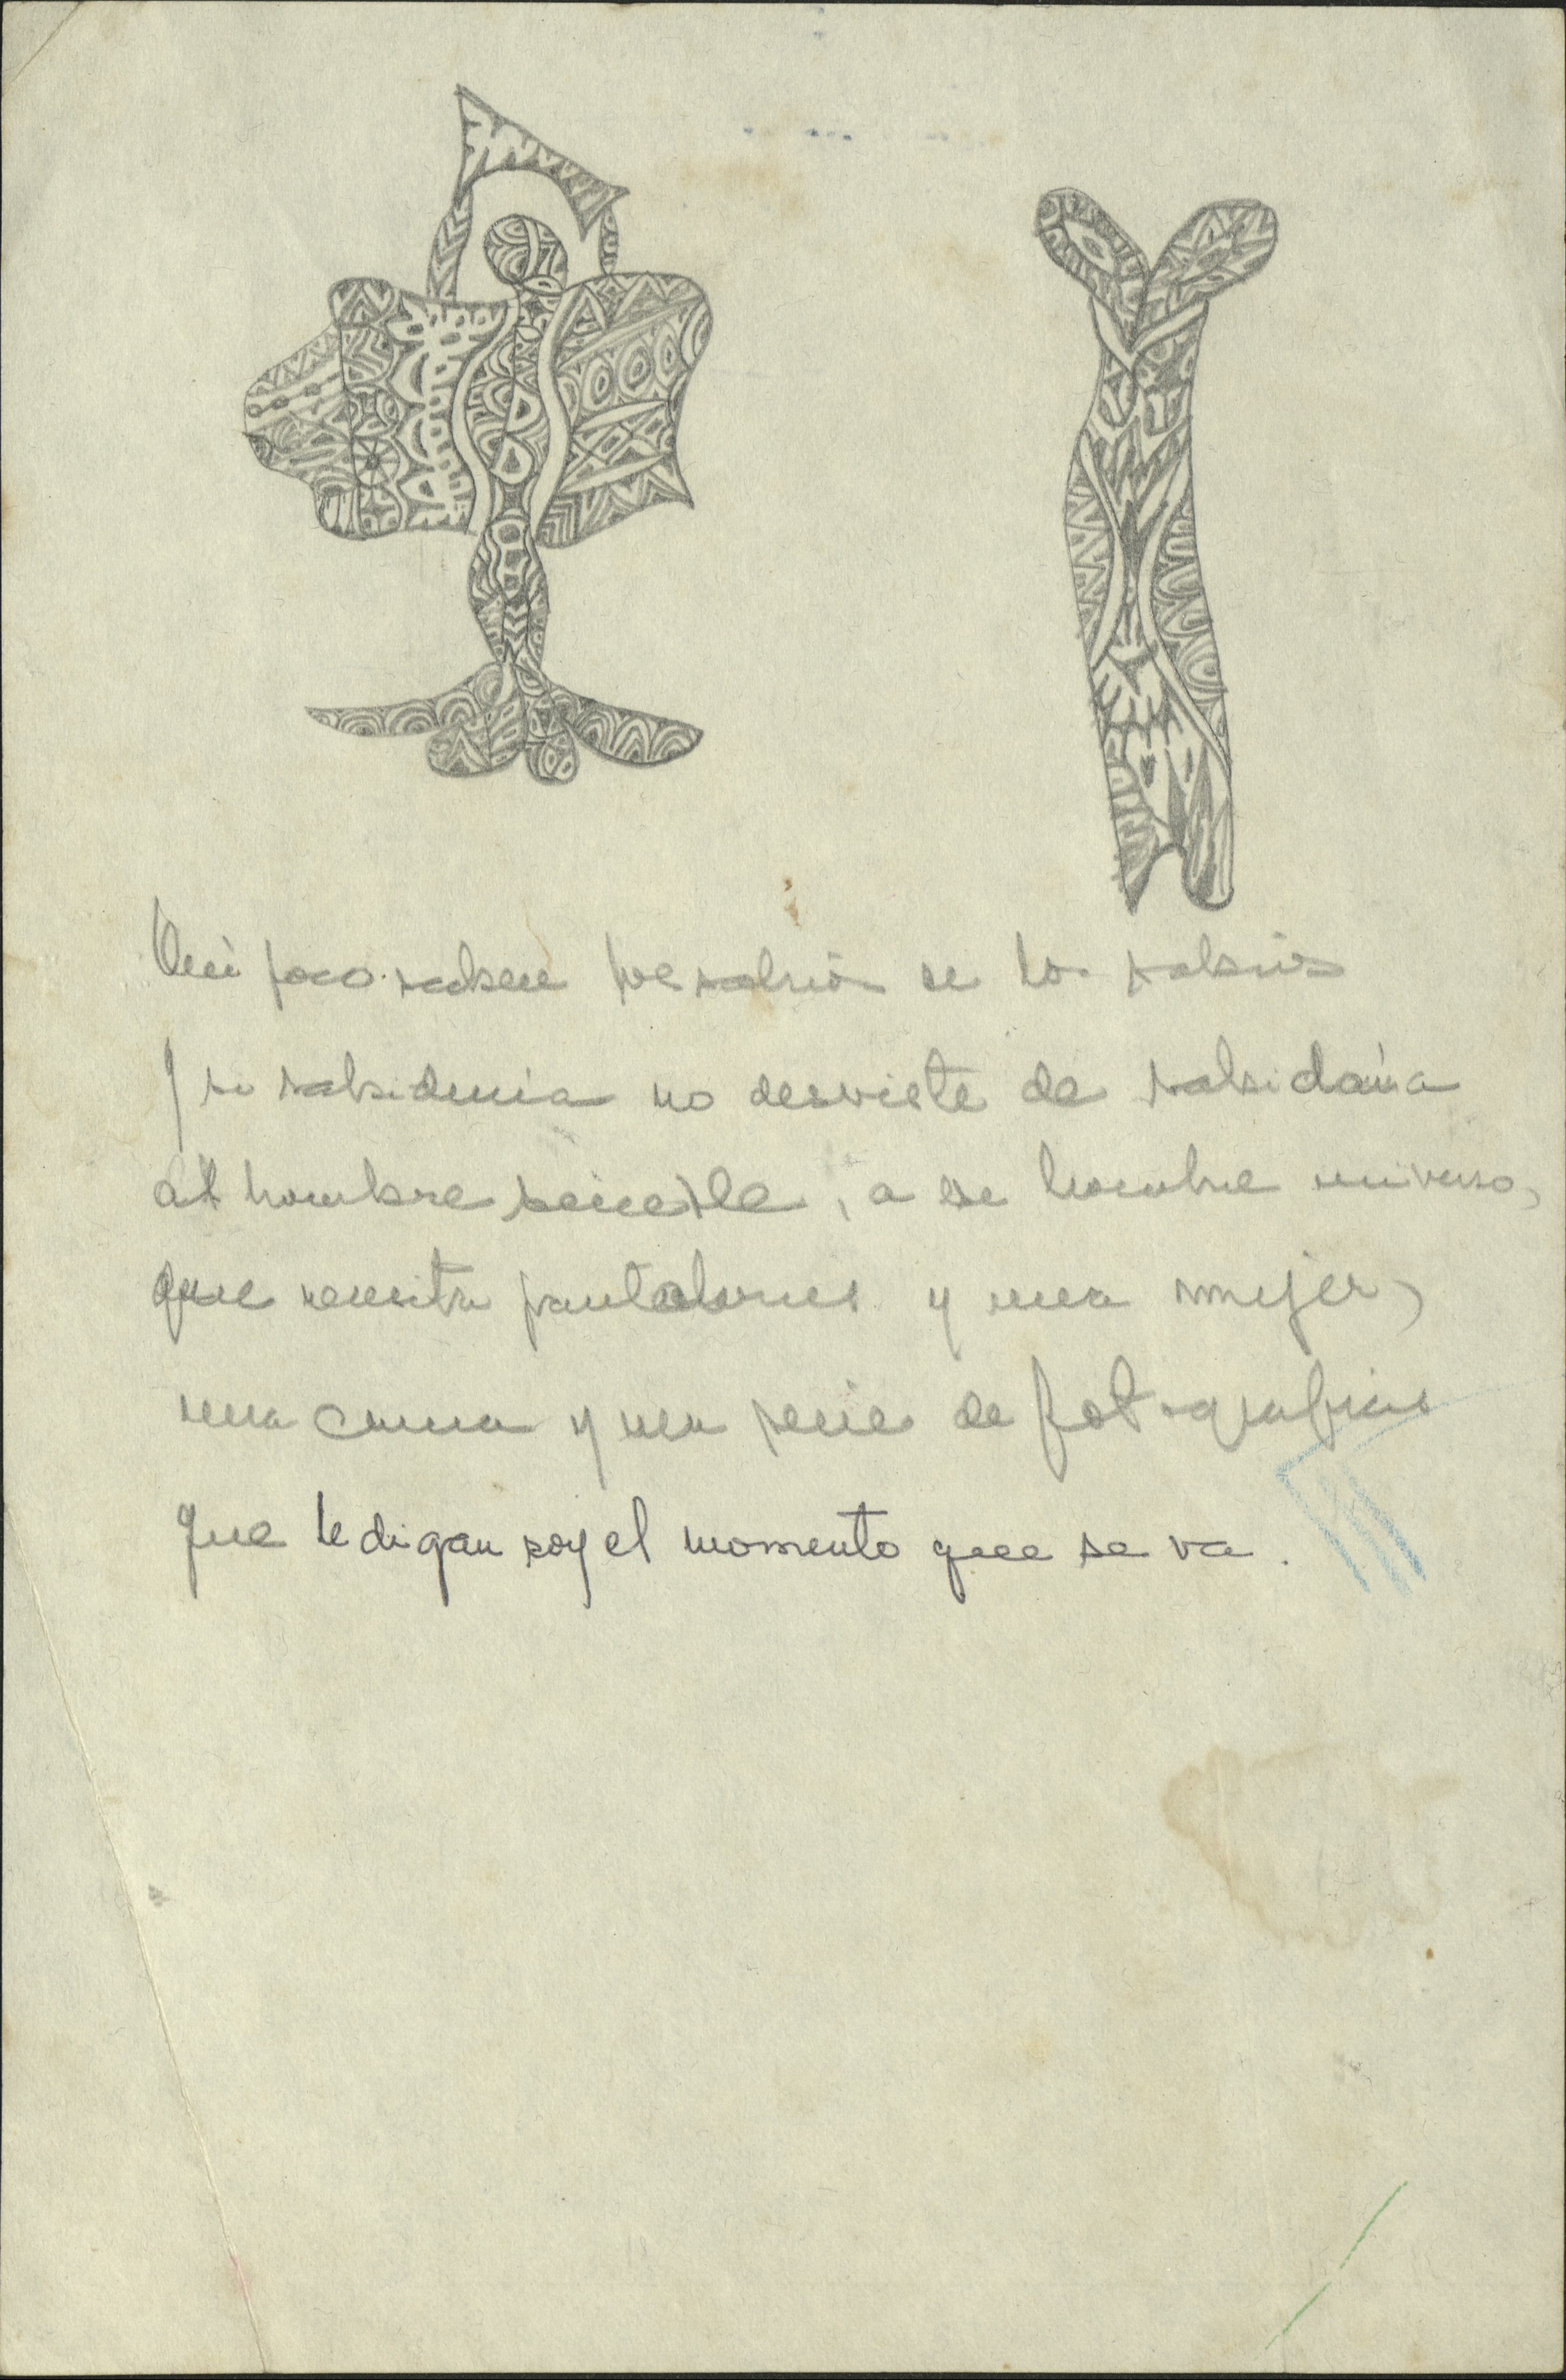 Qué poco saben los sabios se los sabios
Y su sabiduría no desviste de sabiduría
al hombre simple, a ese hombre universo,
que necesita pantalones y una mujer,
una cama y una serie de fotografías
que le digan soy el momento que se va.